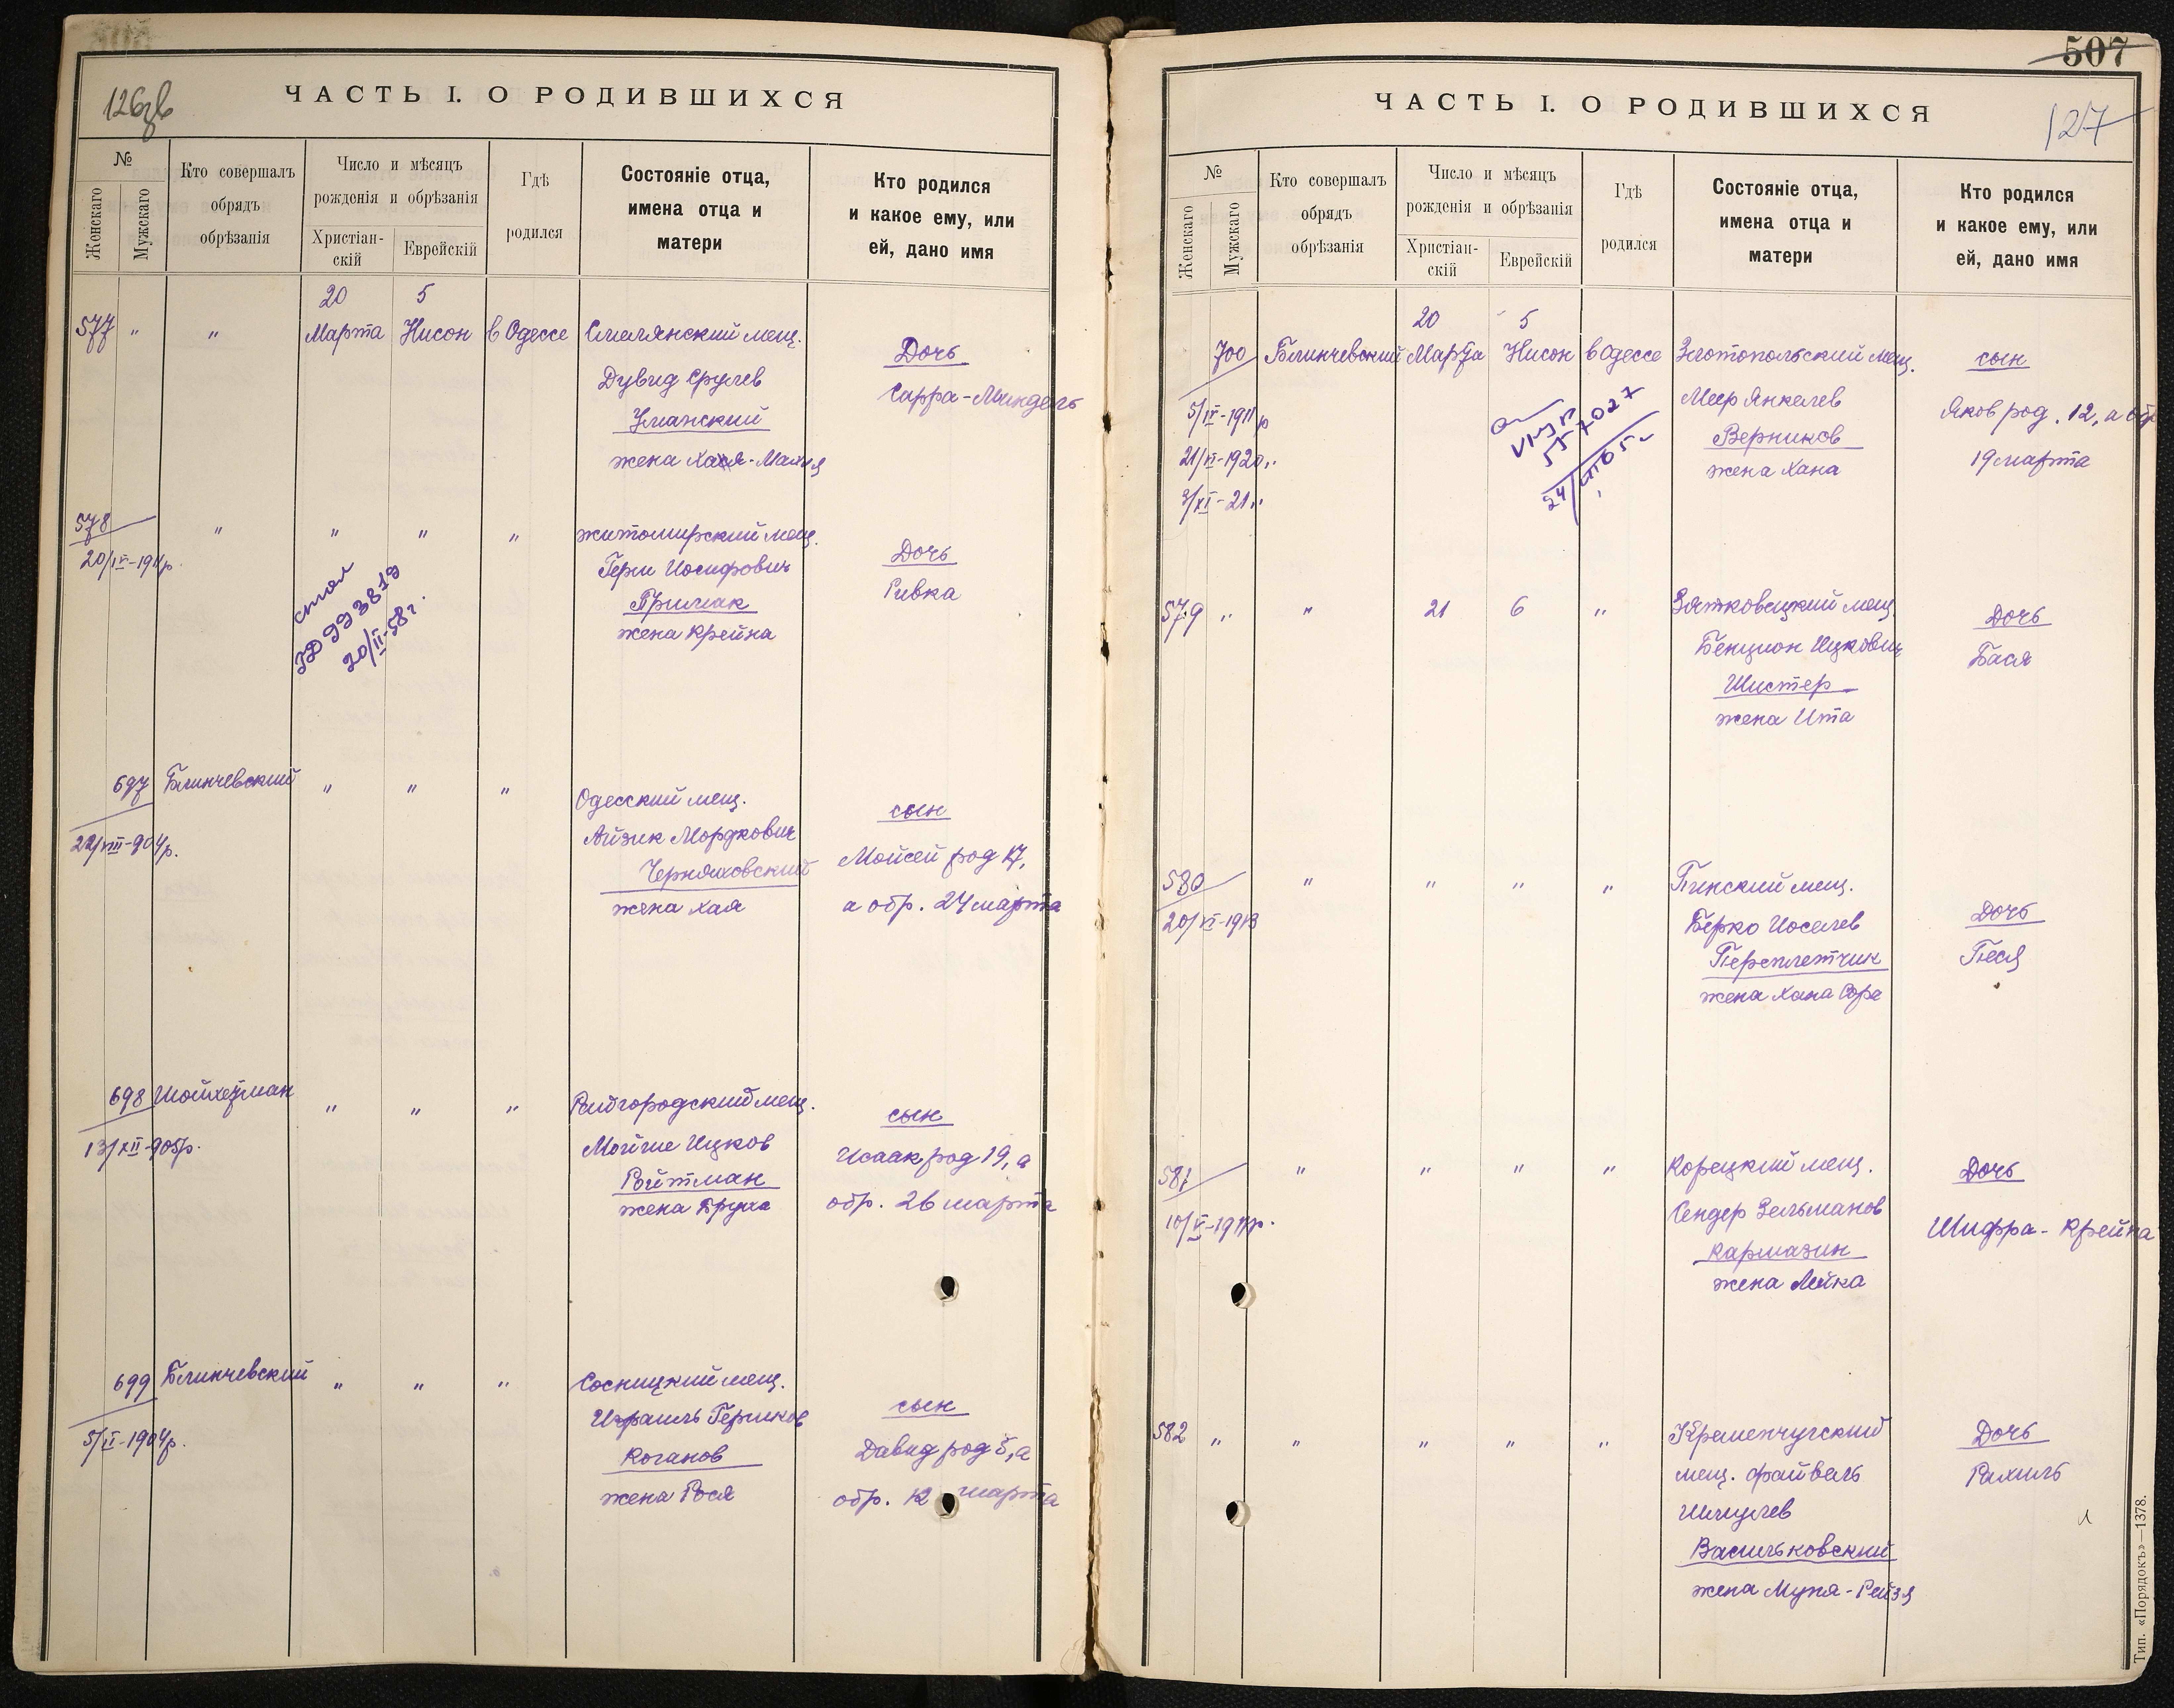 126об
ЧАСТЬ I. О РОДИВШИХСЯ
№
Женскаго
Мужскаго
Кто совершалъ
обрядъ
обрѣзанія
Число и мѣсяцъ
рожденія и обрѣзанія
Христіан-
скій
Еврейскій
Гдѣ
родился
Состояніе отца,
имена отца и
матери
Кто родился
и какое ему, или
ей, дано имя
20 5
577 " " Марта Нисон в Одессе Смелянский мещ.
Дочь
Дувид Срулев
Сарра-Миндель
Уманский
жена Хая-Малия
578 " " " " житомирский мещ.
20/IV-1911р.
Дочь
Герш Иосифович
Ривка
Примак
жена Крейна
стол
ЗД 993819
20/II-58г.
697 Блинчевский " " " Одесский мещ.
сын
22/VIII-904р.
Айзик Мордкович
Мойсей род 17,
Черняховский
а обр. 24 марта
жена Хая
698 Шойхетман " " " Райгородский мещ.
сын
13/XII-905р.
Мойше Ицков
Исаак род 19, а
Ройтман
обр. 26 марта
жена Бруха
699 Блинчевский " " " Сосницкий мещ.
сын
5/II-1904р.
Израиль Гершков
Давид род 5, а
Коганов
обр. 12 марта
жена Рося
507
127
ЧАСТЬ I. О РОДИВШИХСЯ
№
Женскаго
Мужскаго
Кто совершалъ
обрядъ
обрѣзанія
Число и мѣсяцъ
рожденія и обрѣзанія
Христіан-
скій
Еврейскій
Гдѣ
родился
Состояніе отца,
имена отца и
матери
Кто родился
и какое ему, или
ей, дано имя
20 5
700 Блинчевский Марта Нисон в Одессе Златопольский мещ.
сын
5/IV-1911р
Меер Янкелев
Яков род. 12, а обр
Верников
21/VI-1920"
жена Хана
19 марта
3/XI-21"
579 " " 21 6 " Зятковецкий мещ.
Дочь
Бенцион Ицкович
Бася
Шистер
жена Ита
580 " " " " Пинский мещ.
20/XI-1913
Дочь
Берко Иоселев
Песя
Переплетчик
жена Хана Сора
581 " " " " Корецкий мещ.
Дочь
10/V-1911р.
Сендер Зельманов
Шифра-Крейна
Кармазин
жена Лейка
582 " " " " " Кременчугский
Дочь
мещ. Файвель
Рахиль
Шмулев
Васильковский
жена Муня-Рейзя
Тип. «Порядокъ»—1378.